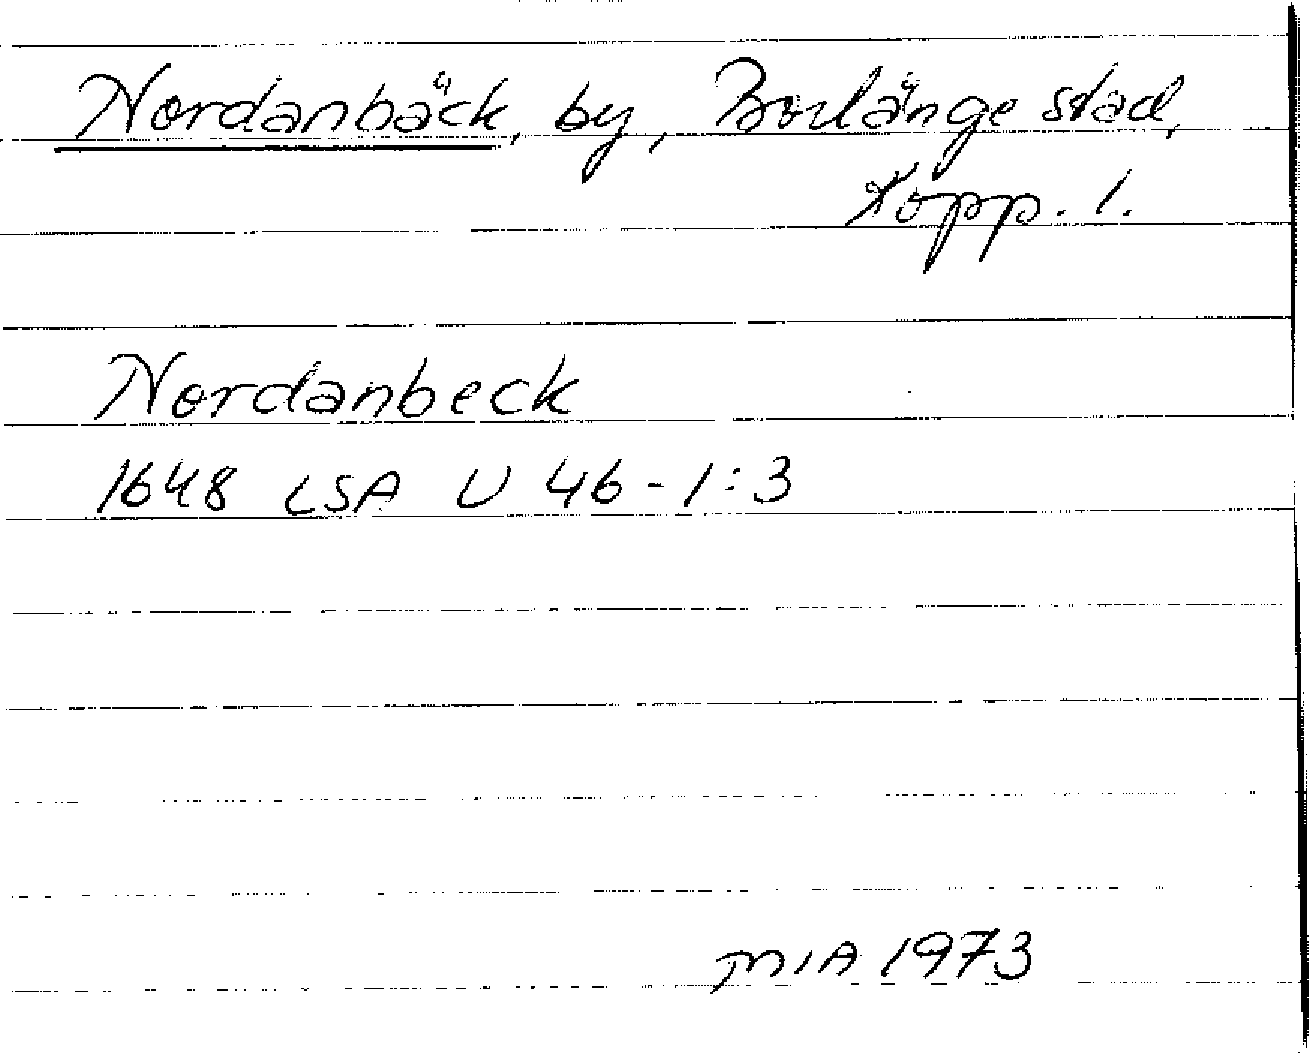 Nordanbäck, by, Borlänge stad,
Kopp. l.
Nordanbeck
1648 LSA U 46-1:3
MIA 1973